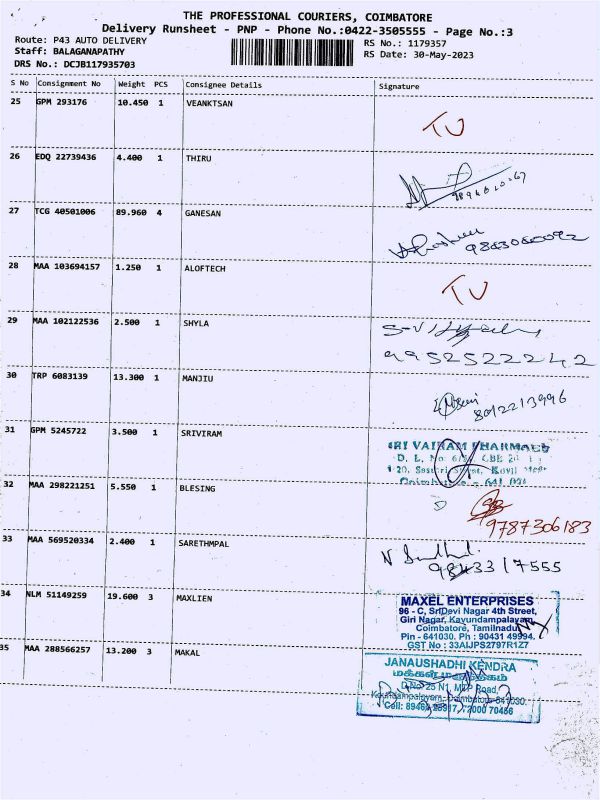 THE PROFESSIONAL COURIERS, COIMBATORE
Delivery Runsheet - PNP - Phone No.:0422-3505555 - Page No.:3
Route: P43 AUTO DELIVERY
RS No.: 1179357
Staff: BALAGANAPATHY
RS Date: 30-May-2023
DRS No.: DCJB117935703
S No Consignment No Weight PCS Consignee Details Signature
25 GPM 293176 10.450 1 VEANKTSAN
TU
26 EDQ 22739436 4.400 1 THIRU
27 TCG 40501006 89.960 4 GANESAN
28 MAA 103694157 1.250 1 ALOFTECH
TU
29 MAA 102122536 2.500 1 SHYLA
9952522242
30 TRP 6083139 13.300 1 MANJIU
8012213996
31 GPM 5245722 3.500 1 SRIVIRAM
SRI VAIRAM PHARMACY
32 MAA 298221251 5.550 1 BLESING
9787306183
33 MAA 569520334 2.400 1 SARETHMPAL
9843317555
34 NLM 51149259 19.600 3 MAXLIEN
MAXEL ENTERPRISES
96 - C, SriDevi Nagar 4th Street,
Giri Nagar, Kavundampalayam,
Coimbatore, Tamilnadu,
Pin - 641030. Ph : 90431 49994,
GST No : 33AIJPS2797R1Z7
35 MAA 288566257 13.200 3 MAKAL
JANAUSHADHI KENDRA
மக்கள் மருந்தகம்
D.No 25 N1, MTP Road,